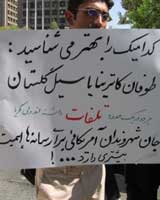 کدامیک را بهتر می شناسید :
طوفان کاترینا یا سیل گلستان
هر دو یک
تلفات
جان شهروندان آمریکائی برای رسانه ها اهمیت
بیشتری دارد ...!